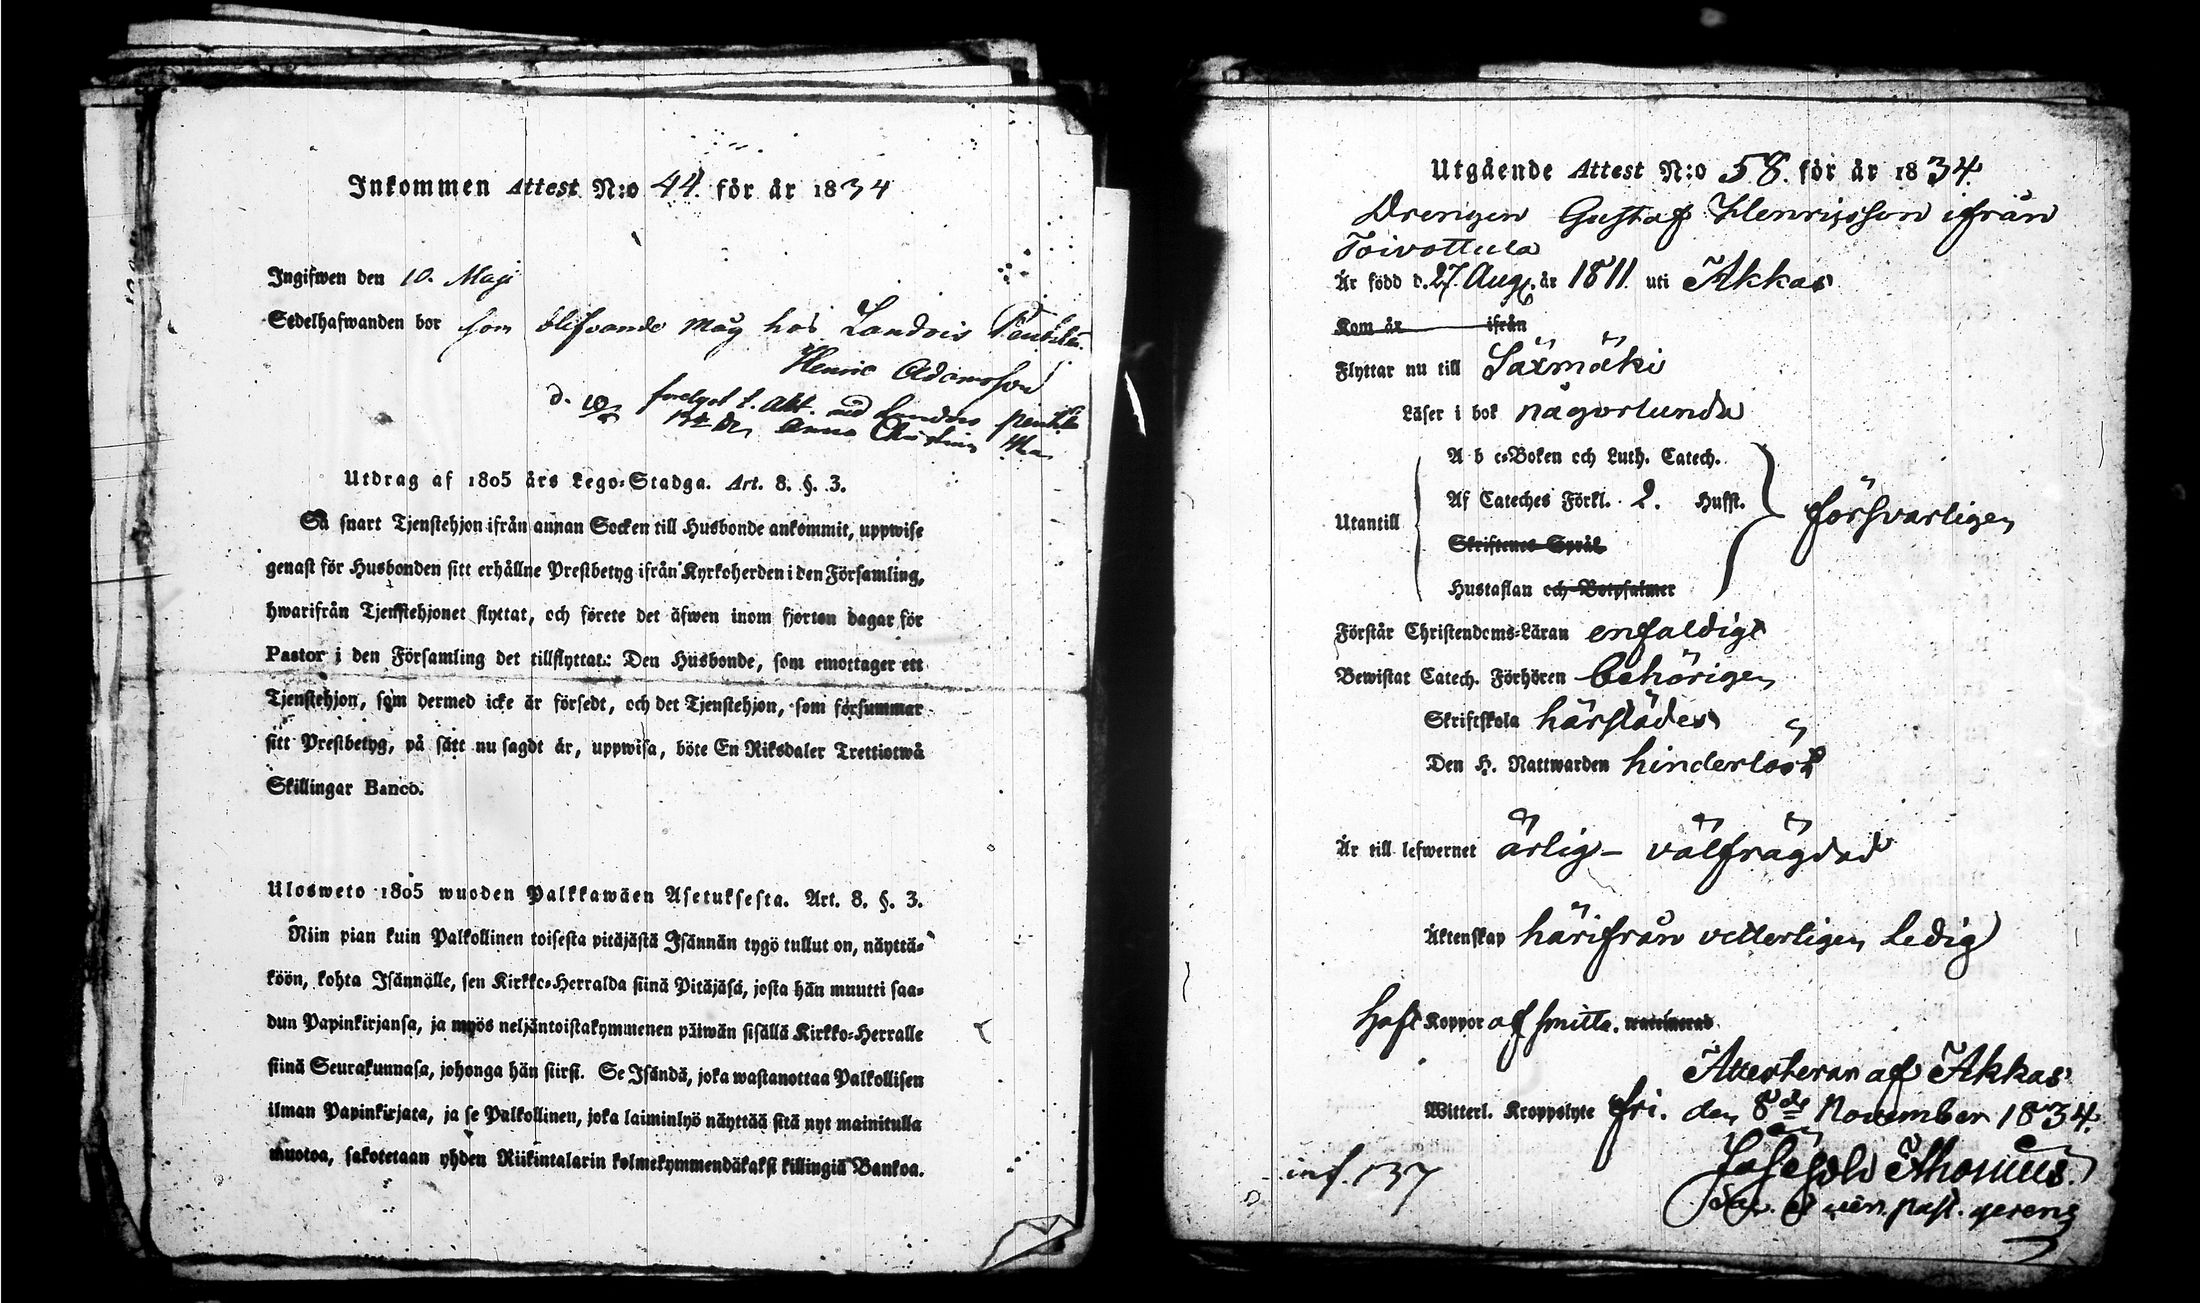 Inkommen Attest N:o 44. för år 1834
Ingifwen den 10. Maji
Sedelhafwanden bor som blifvande måg hos Landvis
Henric Adamsson
d. 10
Anna Christina
Utdrag af 1805 års Lego-Stadga. Art. 8. §. 3.
Så snart Tjenstehjon ifrån annan Socken till Husbonde ankommit, uppwise
genast för Husbonden sitt erhållne Prestbetyg ifrån Kyrkoherden i den Församling,
hwarifrån Tjenstehjonet flyttat, och förete det äfwen inom fjorton dagar för
Pastor i den Församling det tillflyttat: Den Husbonde, som emottager ett
Tjenstehjon, som dermed icke är försedt, och det Tjenstehjon, som försummar
sitt Prestbetyg, på sätt nu sagdt är, uppwisa, böte En Riksdaler Trettiotwå
Skillingar Banco.
Ulosweto 1805 wuoden Palkkawäen Asetuksesta. Art. 8. §. 3.
Niin pian kuin Palkollinen toisesta pitäjästä Isännän tygö tullut on, näyttä-
köön, kohta Isännälle, sen Kirkko-Herralda siinä Pitäjäsä, josta hän muutti saa-
dun Papinkirjansa, ja myös neljäntoistakymmenen päiwän sisällä Kirkko-Herralle
siinä Seurakunnasa, johonga hän siirsi. Se Isändä, joka wastanottaa Palkollisen
ilman Papinkirjata, ja se Palkollinen, joka laiminlyö näyttää sitä nyt mainitulla
muotoa, sakotetaan yhden Riikintalarin kolmekymmendäkaksi killingiä Bankoa.
Utgående Attest N:o 58. för år 1834.
Drengen Gustaf Henricsson ifrån
Toivottula
Är född d. 27. Aug. år 1811. uti Akkas
Kom år ifrån
Flyttar nu till Särmäki
Läser i bok någorlunda
A b c-Boken och Luth. Catech.
Af Cateches Förkl. 2. Hufst.
Utantill försvarligen
Skriftenes Språk
Hustaflan och Botpsalmer
Förstår Christendoms-Läran enfaldigt
Bewistat Catech. Förhören behörigen
Skriftskola härstädes
Den H. Nattwarden hinderlöst
Är till lefwernet ärlig - välfrägdad
Äktenskap härifrån vetterligen ledig
Haft Koppor af smitta.
Attesteras af Akkas
Witterl. Kroppslyte fri. den 8de November 1834.
inf. 137